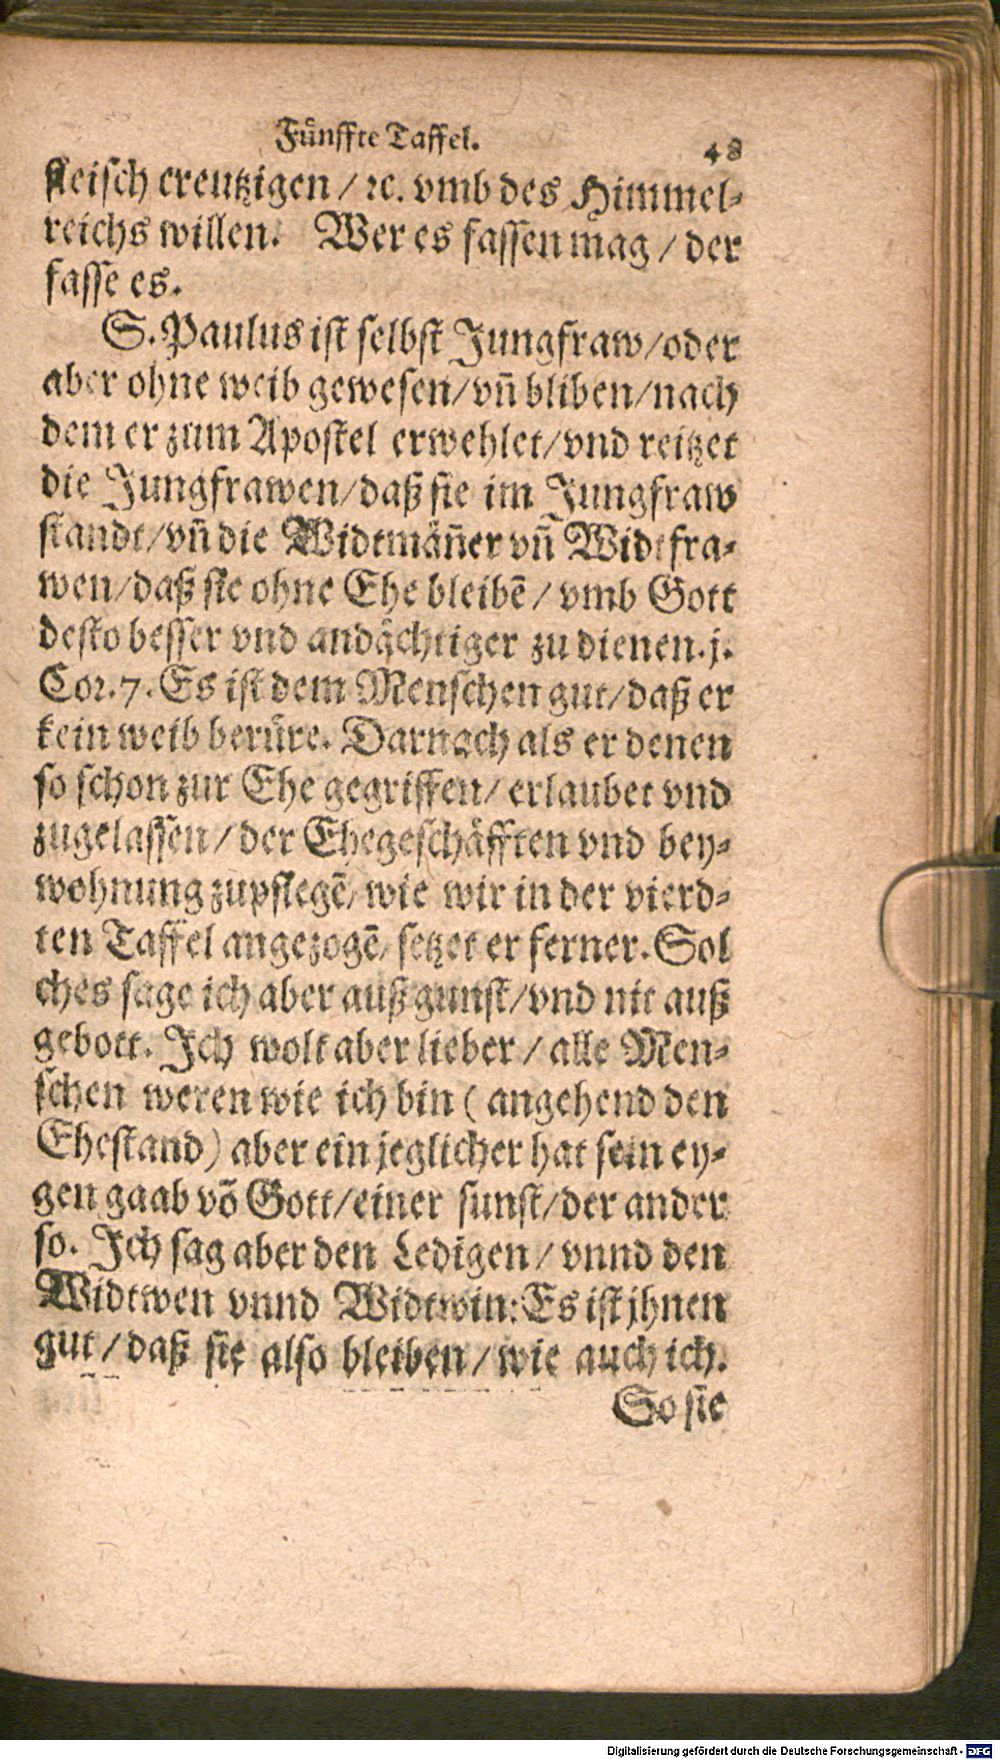 Fünffte Taffel. 48
fleisch creutzigen / ꝛc. vmb des Himmel-
reichs willen. Wer es fassen mag / der
fasse es.
S. Paulus ist selbst Jungfraw / oder
aber ohne weib gewesen / vn̄ bliben / nach
dem er zum Apostel erwehlet / vnd reitzet
die Jungfrawen / daß sie im Jungfraw
standt / vn̄ die Widtmän̄er vn̄ Widtfra-
wen / daß sie ohne Ehe bleibē / vmb Gott
desto besser vnd andächtiger zu dienen. j.
Cor. 7. Es ist dem Menschen gut / daß er
kein weib berüre. Darnach als er denen
so schon zur Ehe gegriffen / erlaubet vnd
zugelassen / der Ehegeschäfften vnd bey-
wohnung zupflegē / wie wir in der vierd-
ten Taffel angezogē / setzet er ferner. Sol
ches sage ich aber auß gunst / vnd nit auß
gebott. Ich wolt aber lieber / alle Men-
schen weren wie ich bin ( angehend den
Ehestand ) aber ein jeglicher hat sein ey-
gen gaab vō Gott / einer sunst / der ander
so. Ich sag aber den Ledigen / vnnd den
Widtwen vnnd Widtwin: Es ist jhnen
gut / daß sie also bleiben / wie auch ich.
So sie
Digitalisierung gefördert durch die Deutsche Forschungsgemeinschaft - DFG